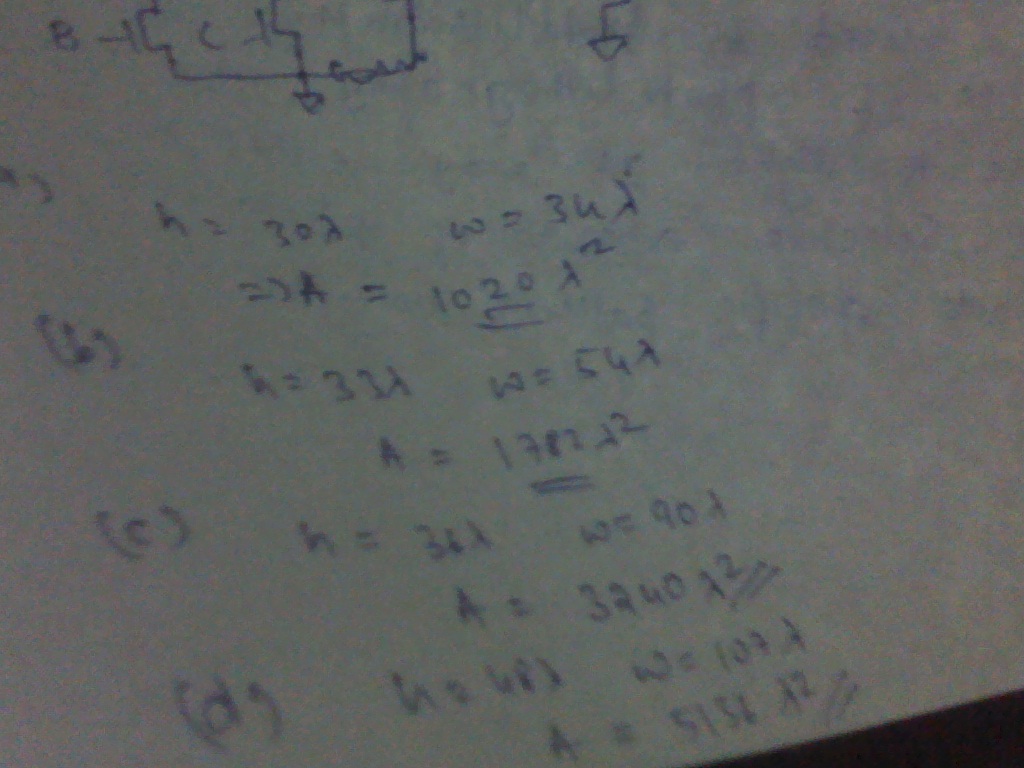 B C
h = 30λ w = 34λ
=> A = 1020 λ²
(b)
h = 33λ w = 54λ
A = 1782 λ²
(c) h = 36λ w = 90λ
A = 3240 λ²
(d) h = 48λ w = 107λ
A = 5136 λ²